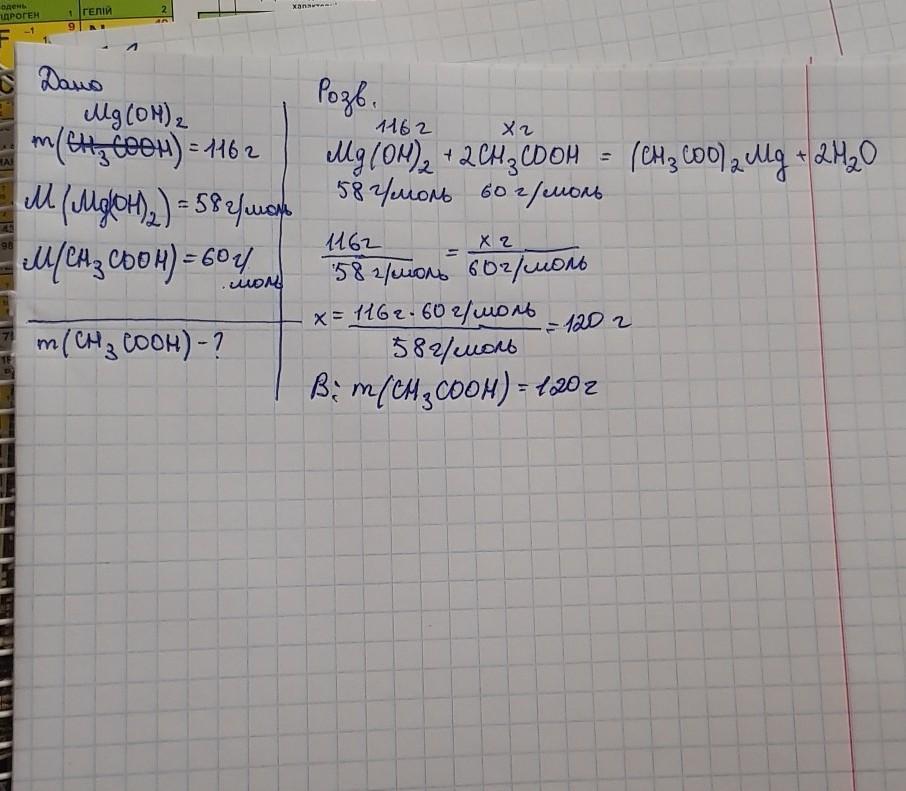 ГЕЛІЙ 2
1
9
-1
F
Дано
Mg(OH)₂
m(C̶H̶₃̶C̶O̶O̶H̶) = 116 г
M(Mg(OH)₂) = 58 г/моль
M(CH₃COOH) = 60 г/
моль
m(CH₃COOH) - ?
Розв.
116 г х г
Mg(OH)₂ + 2CH₃COOH = (CH₃COO)₂Mg + 2H₂O
58 г/моль 60 г/моль
116 г / 58 г/моль = х г / 60 г/моль
х = 116 г · 60 г/моль / 58 г/моль = 120 г
В: m(CH₃COOH) = 120 г